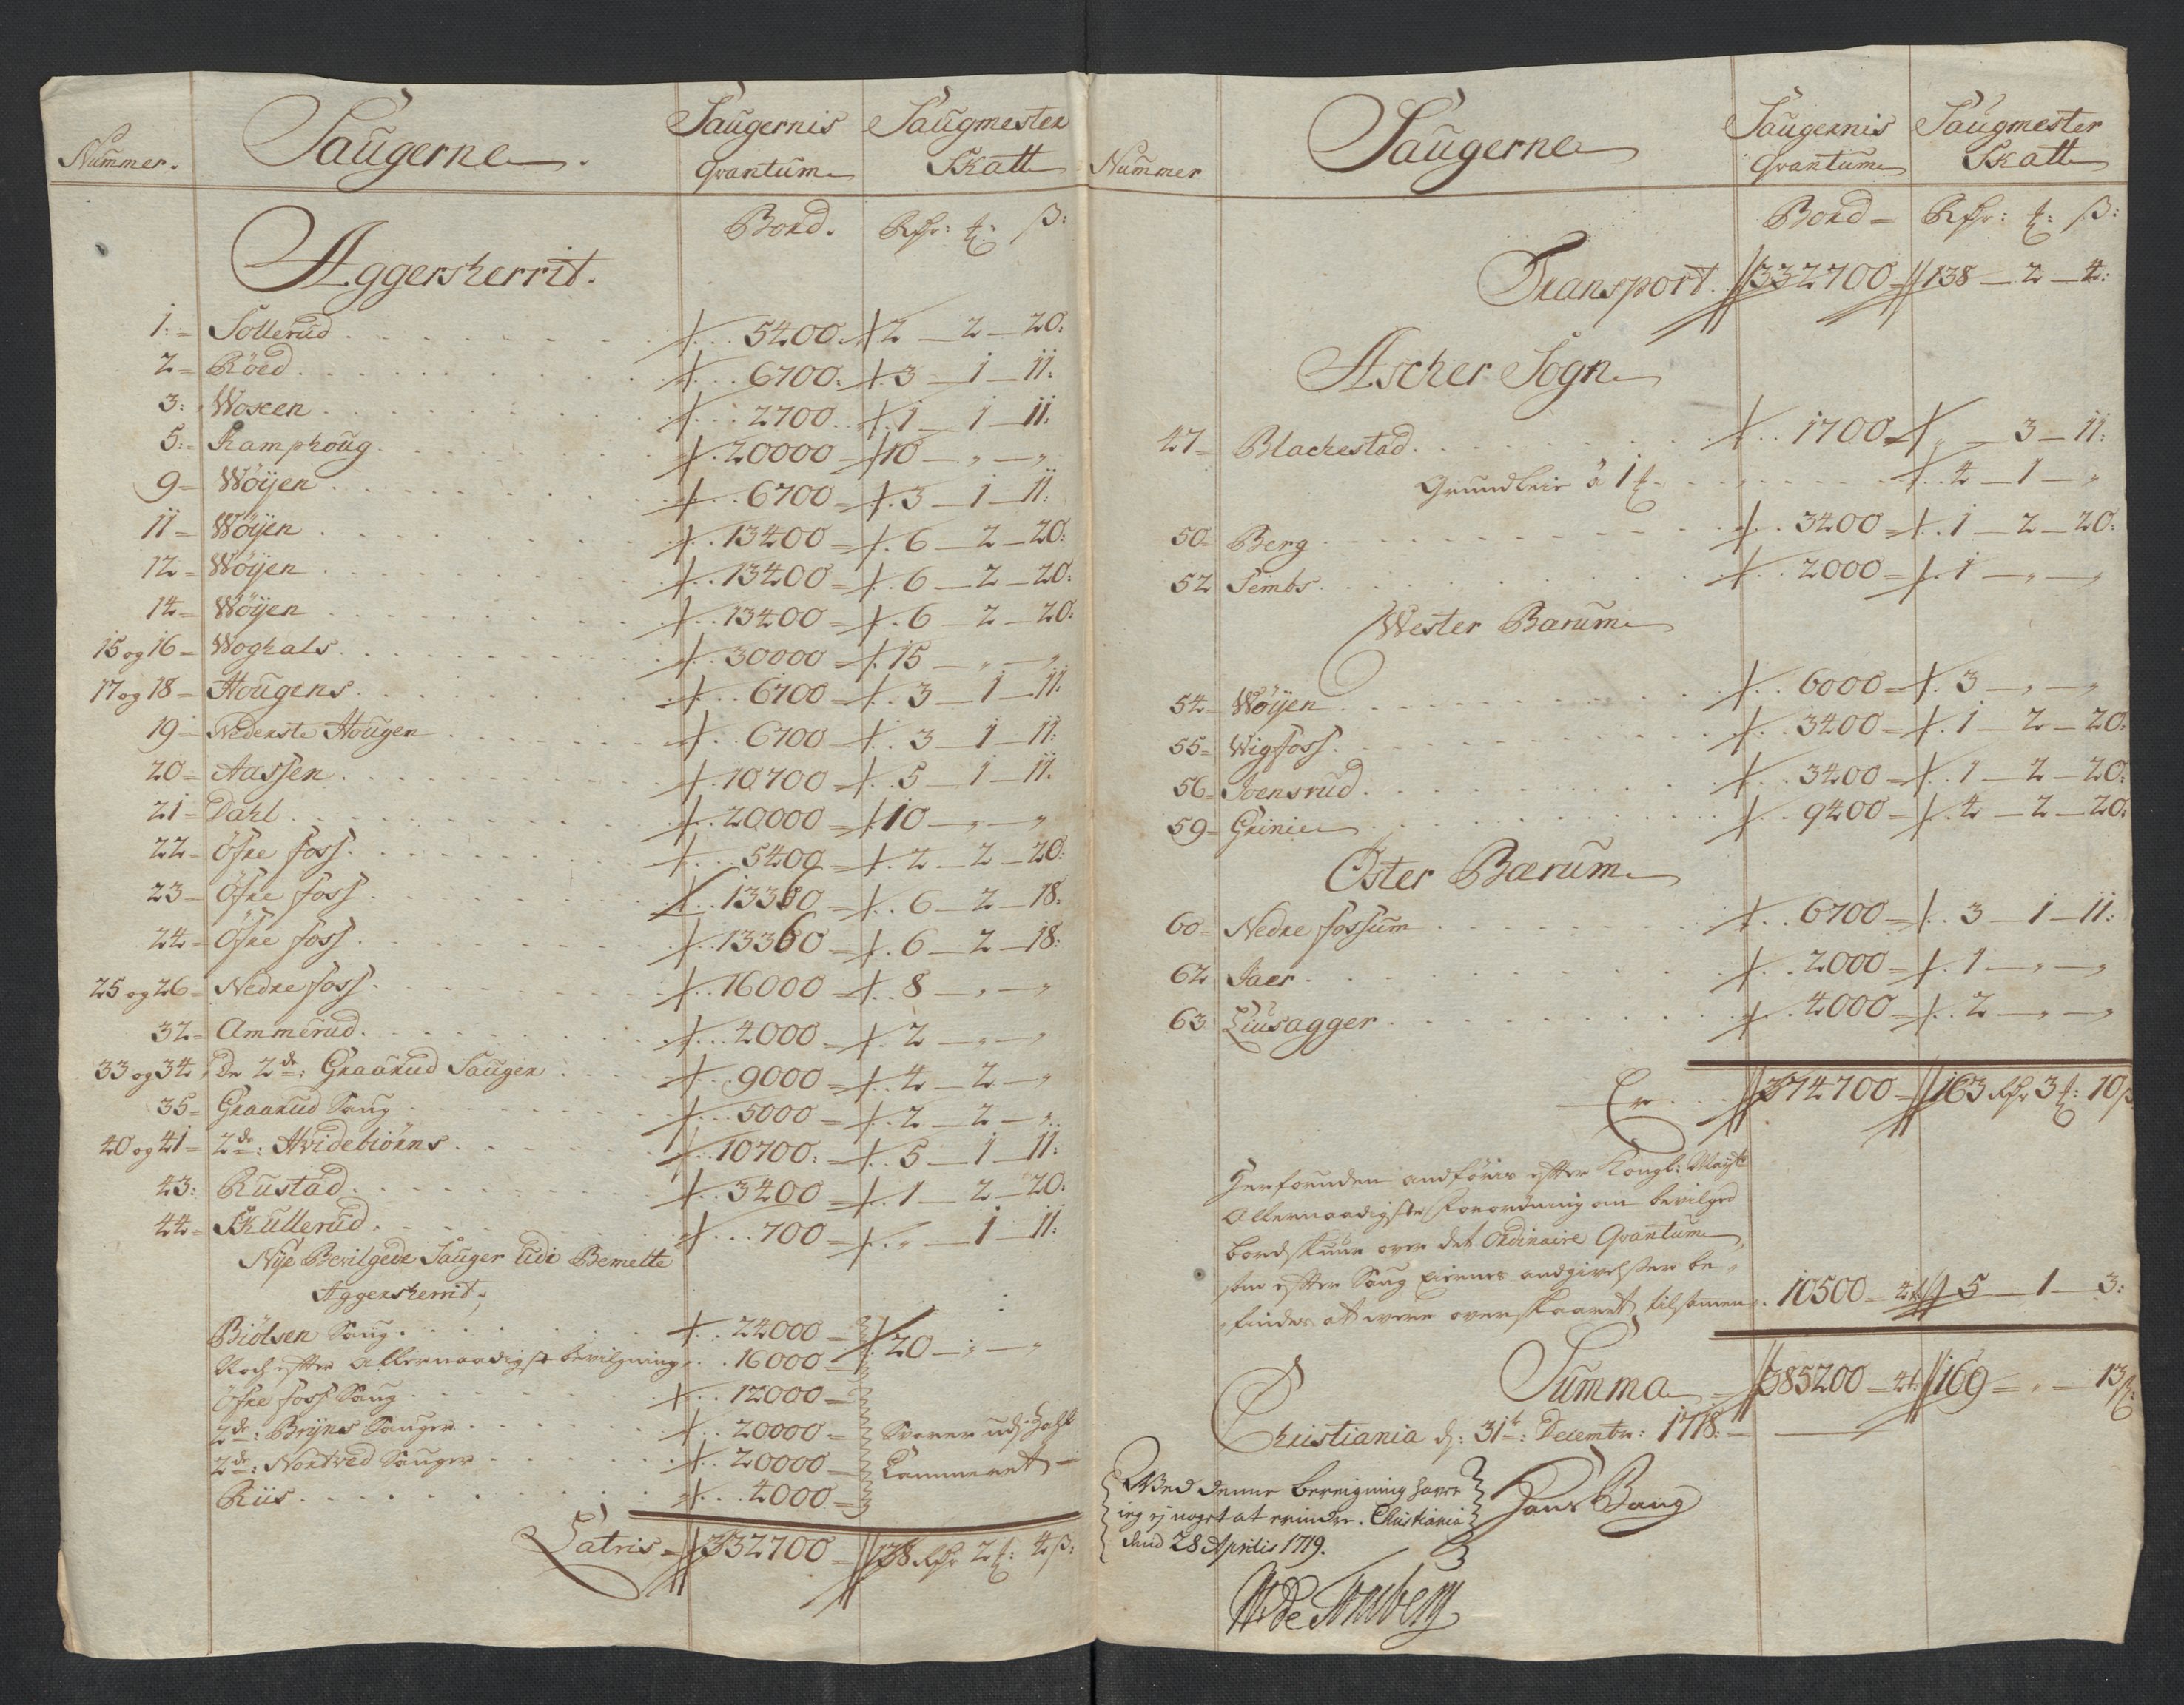 Nummer. Saugerne. Saugernis Qvantum Saugmester Skatt
Bord. Rdr: ƶ: ß:
Aggersherrit.
1. Sollerud 5400 2 – 2 – 20:
2 Röed 6700 3 – 1 – 11:
3: Woxen 2700 1 – 1 – 11:
5: Kamphoug 20000 10 – „ – „
9 Wöyen 6700 3 – 1 – 11:
11 Wöyen 13400 6 – 2 – 20:
12 Wöyen 13400 6 – 2 – 20:
14 Wöyen 13400 6 – 2 – 20:
15 og 16 Woghals 30000 15 – „ – „
17 og 18 Hougens 6700 3 – 1 – 11:
19 Nederste Hougen 6700 3 – 1 – 11:
20 Aassen 10700 5 – 1 – 11:
21 Dahl 20000 10 – „ – „
22 Öfre foss 5400 2 – 2 – 20:
23 Öfre foss 13360 6 – 2 – 18:
24 Öfre foss 13360 6 – 2 – 18:
25 og 26 Nedre foss 16000 8 – „ – „
32 Ammerud 4000 2 – „ – „
33 og 34 De 2de: Graarud Sauger 9000 4 – 2 – „
35 Graarud Saug 5000 2 – 2 – „
40 og 41 2de: Hvidebiörns 10700: 5 – 1 – 11:
43: Rustad 3400 1 – 2 – 20:
44 Skullerud 700 „ – 1 – 11:
Nye Bevilgede Sauger udi Bemelte
Aggersherrit,
Biölsen Saug 24000
Noch efter Allernaadigst bevilgning 16000 20 – „ – „
Öfre foss Saug 12000
2de: Bryns Sauger 20000 Svarer udj Zahl
2de: Nortved Sauger 20000 Cammeret
Riis 4000
Latris 332700 138 Rdr 2 ƶ: 4 ß:
Nummer Saugerne Saugernis Qvantum Saugmester Skatt
Bord Rdr: ƶ: ß:
Transport. 332700 138 – 2 – 4:
Ascher Sogn
47 Blachestad 1700 „ – 3 – 11:
Grundleie à 1 ƶ 4 – 1 – „
50 Berg 3400 1 – 2 – 20:
52 Sembs 2000 1 – „ – „
Wester Barum
54 Wöyen 6000 3 – „ – „
55 Wigfoss 3400 1 – 2 – 20:
56 Joensrud 3400 1 – 2 – 20:
59 Grinie 9400 4 – 2 – 20:
Öster Bærum
60 Nedre fossum 6700 3 – 1 – 11:
62 Jaer 2000 1 – „ – „
63 Liusagger 4000 2 – „ – „
Er 374700 163 Rdr 3 ƶ: 10 ß
Herforuden andföris efter Kongl: Mayts
Allernaadigste forordning om bevilged
bordskuur over det Ordinaire Qvantum
som efter Saug Eiernes angivelser be-
findes at were overskaaret, tilsamen 10500 5 – 1 – 3:
Summa 385200 169 – „ – 13 ß:
Christiania d: 31te: Decembr: 1718:
Hans Bang
Wed denne bereigning haver
ieg ej noget at erindre. Christiania
dend 28 Aprilis 1719.